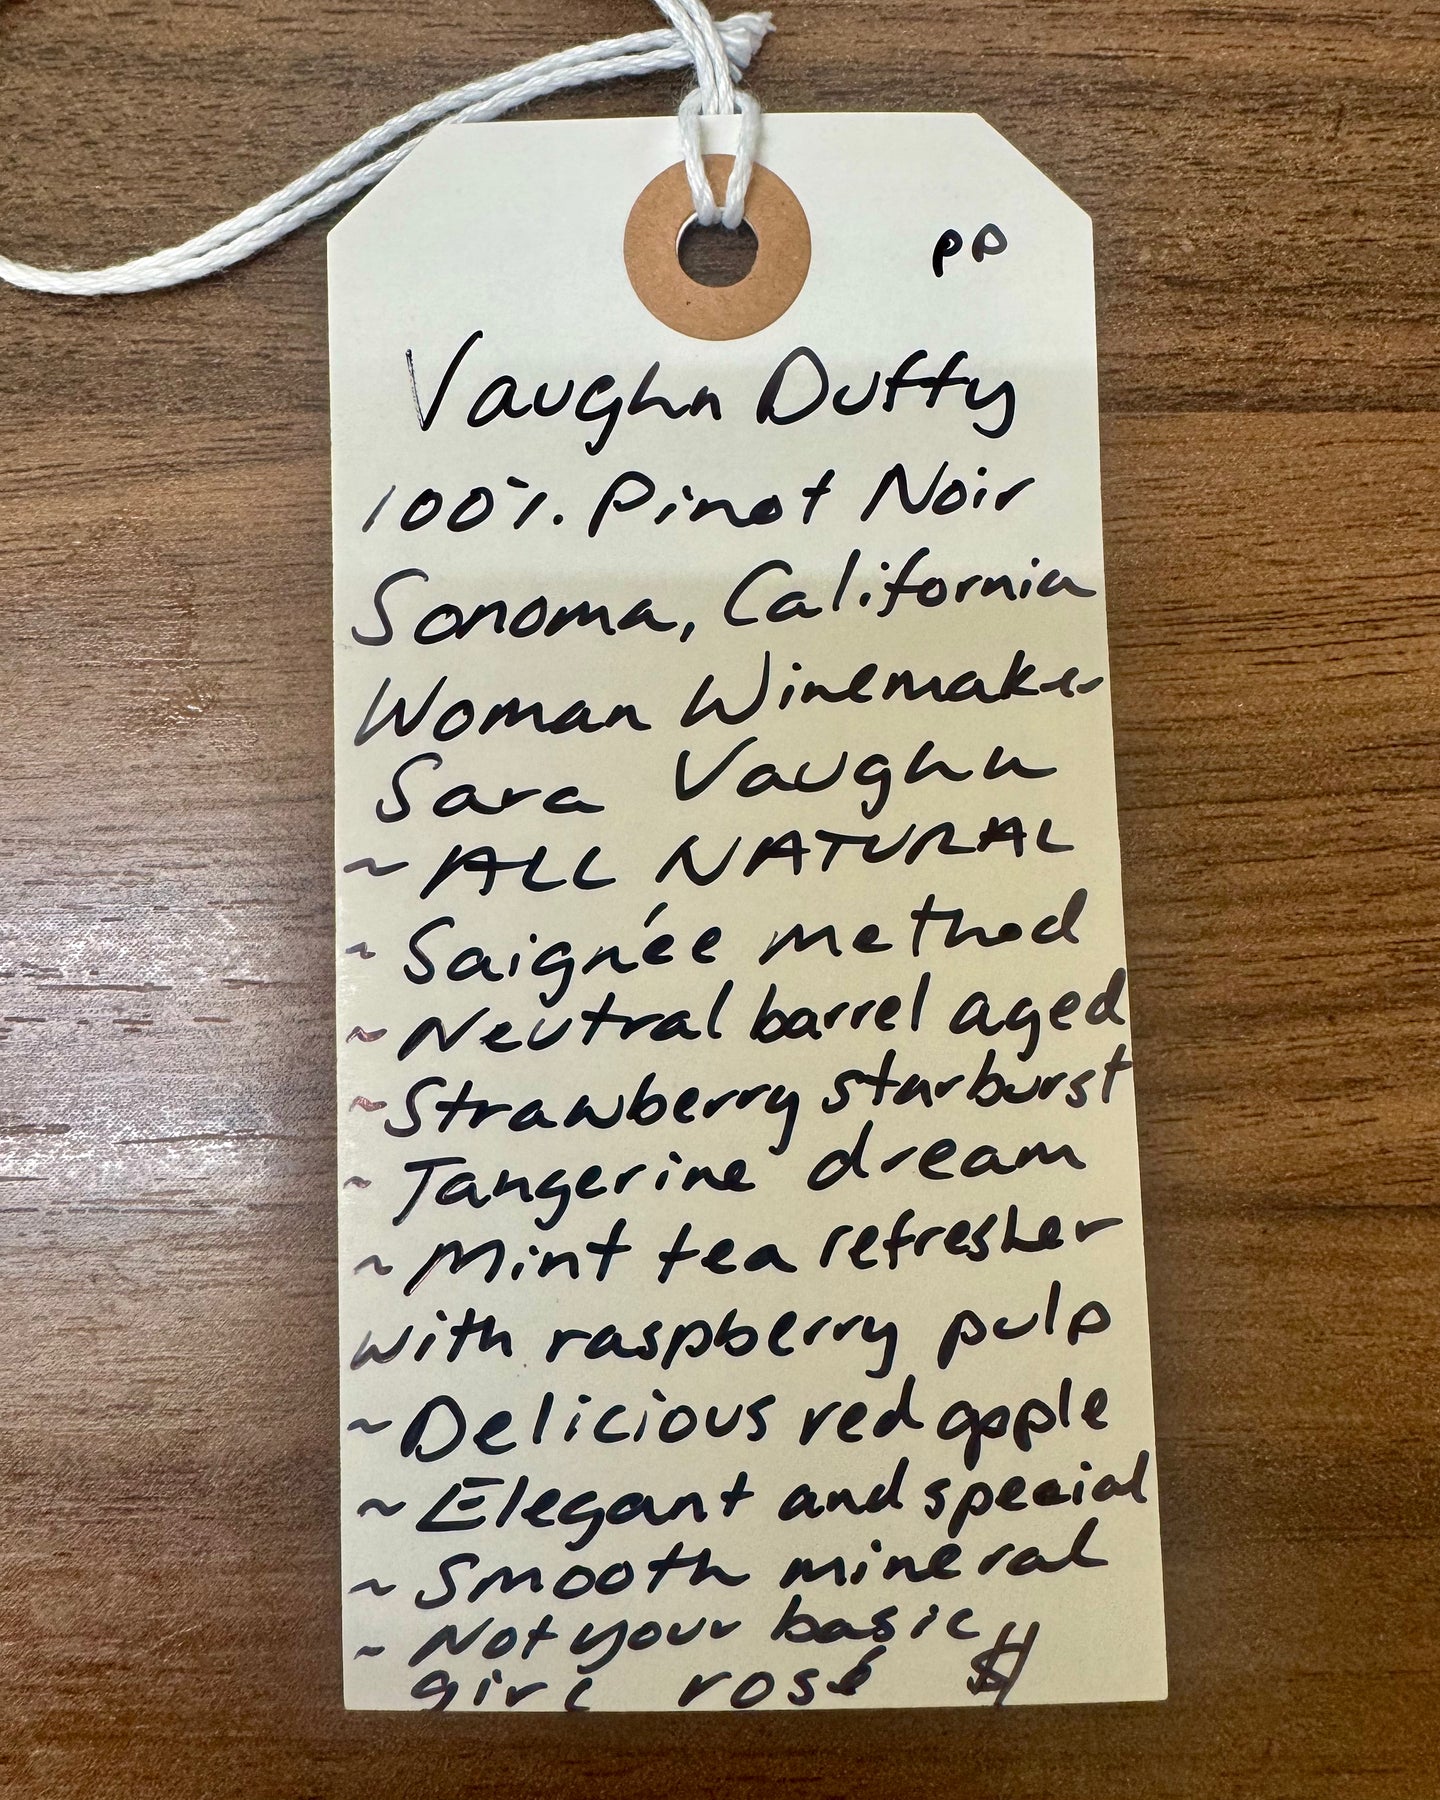 PP
Vaughn Duffy
100%. Pinot Noir
Sonoma, California
Woman Winemaker
Sara Vaughn
~ ALL NATURAL
~ Saignée method
~ Neutral barrel aged
~ Strawberry starburst
~ Tangerine dream
~ Mint tea refresher
with raspberry pulp
~ Delicious red apple
~ Elegant and special
~ Smooth mineral
~ Not your basic
girl rosé